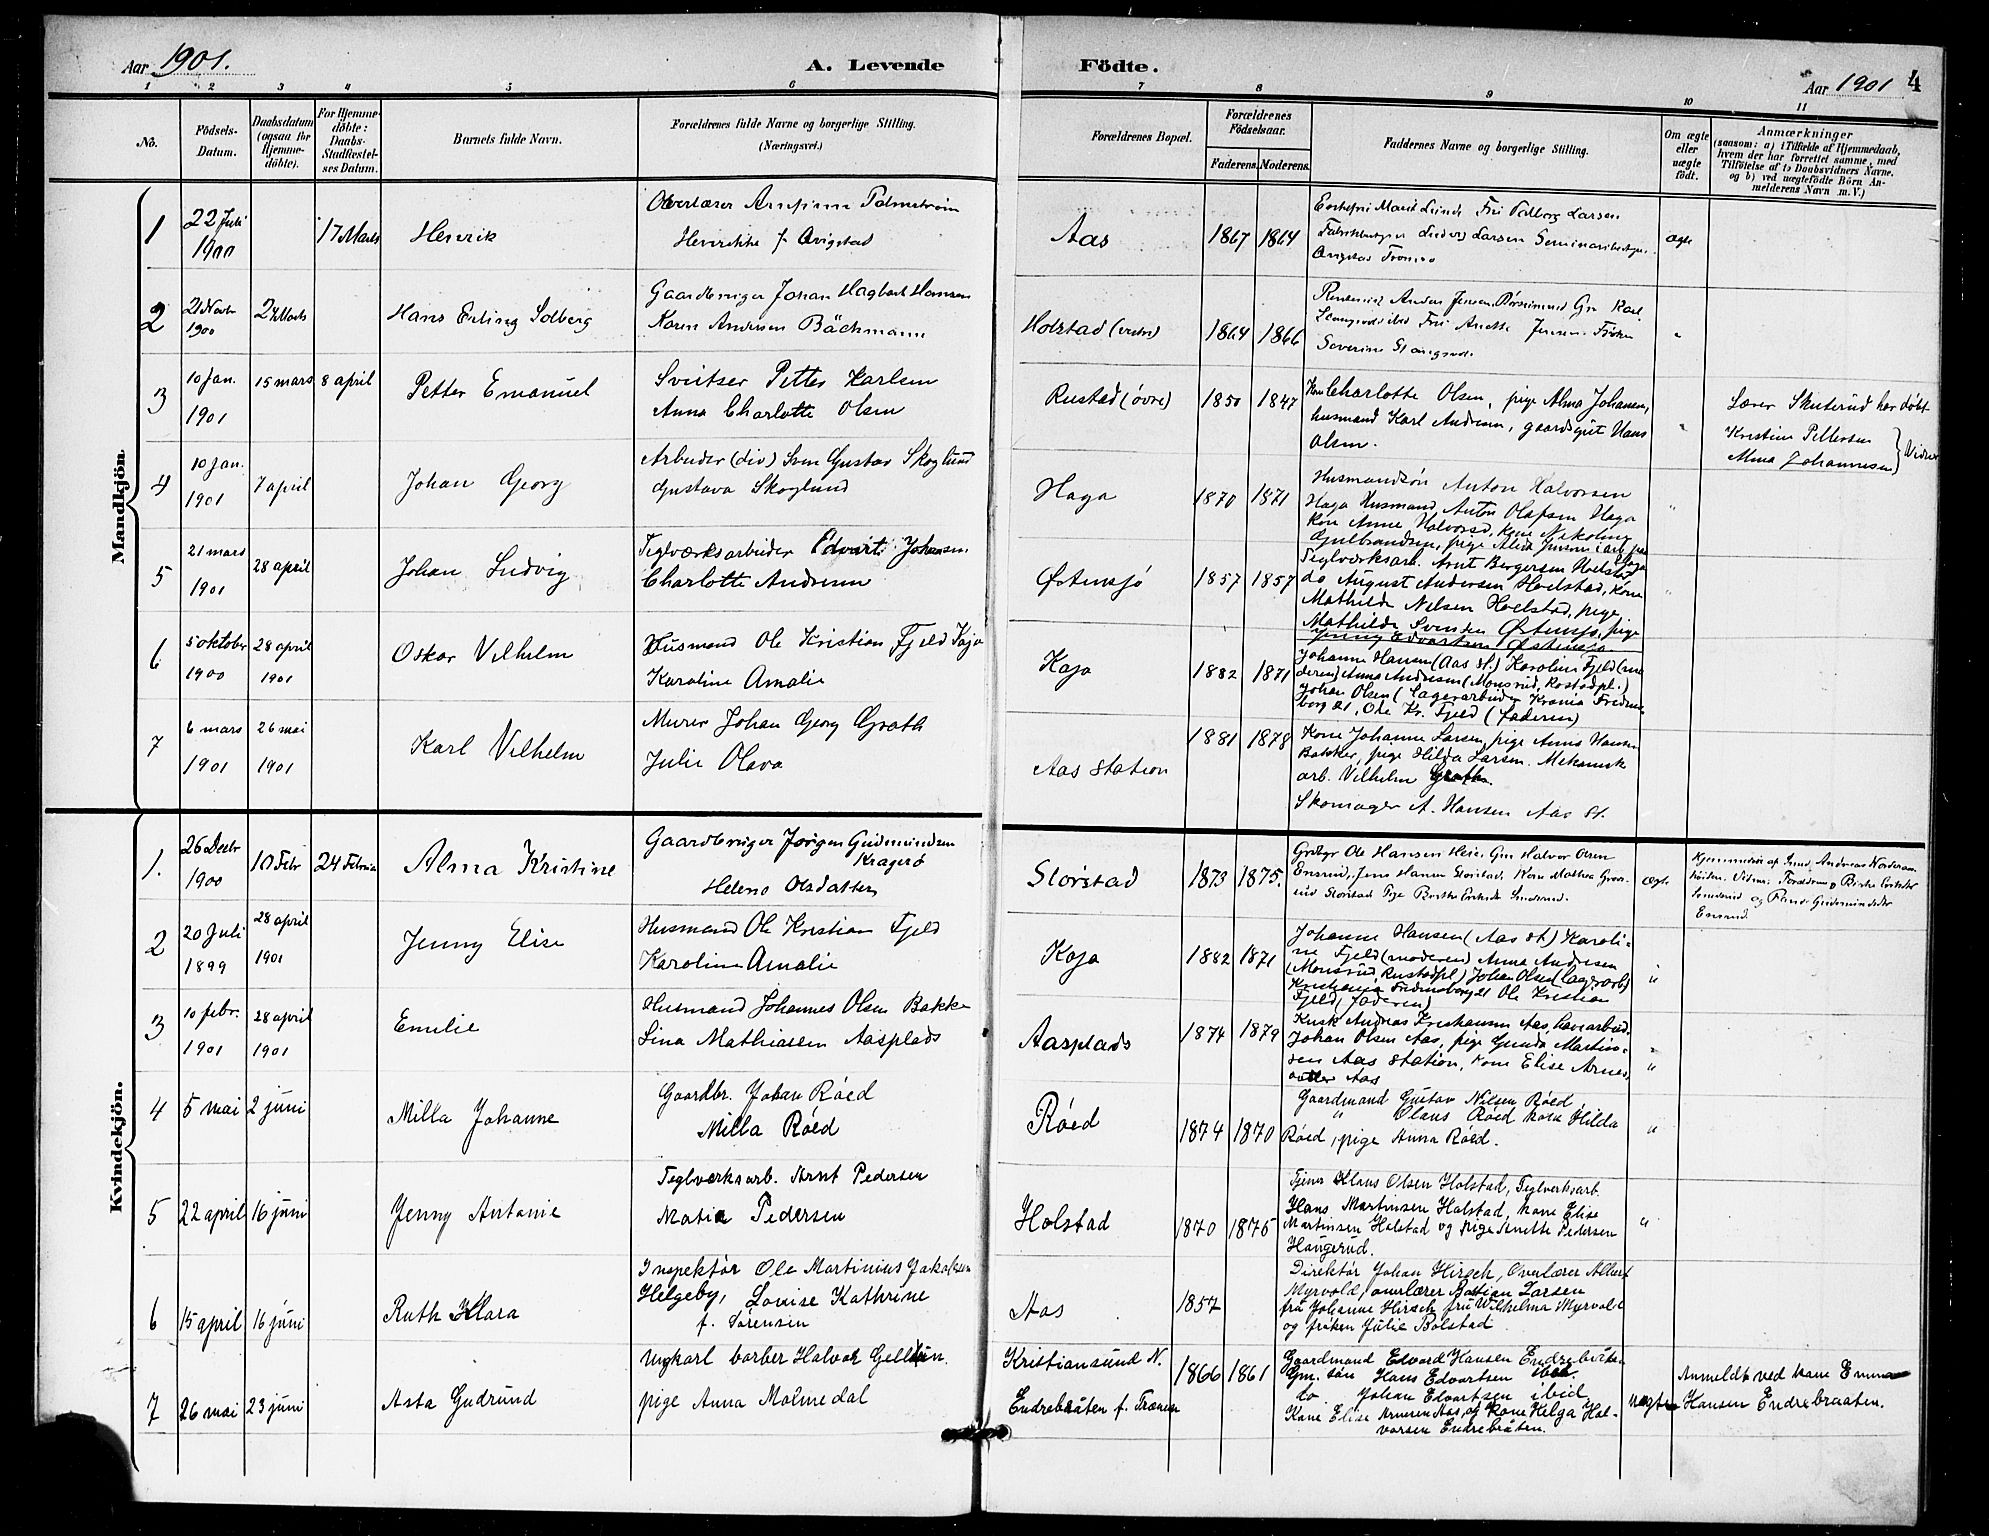 Aar 1901. A. Levende Födte. Aar 1901 4
1 2 3 4 5 6 7 8 9 10 11
No.
Födsels-Datum.
Daabsdatum (ogsaa for Hjemme-döbte).
For Hjemme-döbte: Daabs-Stadfæstel-ses Datum.
Barnets fulde Navn.
Forældrenes fulde Navne og borgerlige Stilling.
(Næringsvei.)
Forældrenes Bopæl.
Forældrenes Födselsaar.
Faderens. Moderens.
Faddernes Navne og borgerlige Stilling.
Om ægte eller uægte födt.
Anmærkninger
(saasom: a) i Tilfælde af Hjemmedaab,
hvem der har forrettet samme, med
Tilföielse af to Daabsvidners Navne.
og b) ved uægtefödte Börn An-
melderens Navn m. V.)
Mandkjön.
1 22 Juli 1900 17 Marts Henrik
Overlærer
Henrikke f. Qvigstad
Aas 1867 1864
Fru Valborg Larsen
Larsen
Tromsø
ægte
2 21 Novbr 1900 24 Marts Hans Erling Solberg
Gaardbruger Johan Hagbart Hansen
Karen Andersen Bäckmann
Holstad (vestre) 1864 1866
Anders Jensen
Fru Anette Jensen
Severine
"
3 10 Jan. 1901 15 mars 8 april Petter Emanuel
Sveitser Petter Karlsen
Anna Charlotte Olsen
Rustad (övre) 1850 1847
Kone Charlotte Olsen, pige Alma Johansen,
husmand Karl Andresen, gaardsgut Hans
Olsen.
"
Lærer Skuterud har döbt
Kristine Pettersen
Alma Johannesen } Vidner
4 10 Jan. 1901 7 april Johan Georg
Arbeider (div) Sven Gustav Skoglund
Gustava Skoglund
Haga 1870 1871
Husmandsön Anton Halvorsen
Haga Husmand Anton Olafsen Haga
Kone Anne Halvorsd, Kone Nikoline
Gulbrandsen, pige Alida
"
5 21 mars 1901 28 april Johan Ludvig
Teglværksarbeider Edvart Johansen
Charlotte Andresen
Østensjö 1857 1857
Teglværksarb. Arnt Bergersen Holstad
do August Andersen Holstad, Kone
Mathilde Nelsen Holstad, pige
Mathilde Svendsen Østensjö, pige
Jenny Edvartsen Østensjö
"
6 5 oktober 1900 28 april 1901 Oskar Vilhelm
Husmand Ole Kristian Fjeld Kaja
Karoline Amalie
Kaja 1882 1871
Johanne Hansen (Aas st.) Karoline Fjeld (mo-
deren) Anna Andresen (Monsrud, Rustadpl.)
Johan Olsen (Lagerarbeider Krania Fredens-
borg 21, Ole Kr. Fjeld (faderen)
7 6 mars 1901 26 mai 1901 Karl Vilhelm
Murer Johan Georg Grath
Julie Olava
Aas station 1881 1878
Kone Johanne Larsen, pige Anna Hansen
Bakker, pige Hilda Larsen. Mekanisk
arb. Vilhelm Grath.
Skomager A. Hansen Aas st.
Kvindekjön.
1. 26 Decbr 1900 10 Febr 24 Februar Alma Kristine
Gaardbruger Jörgen Gudmundsen
Kragerö
Helene Olsdatter
Storstad 1873 1875.
Ole Hansen Heie, Gm Halvor Olsen
Enerud, Jens Hansen Storstad, Kone Mathea
Storstad Pige Berthe
ægte
Hjemmedöbt af
Andreas
Vidner: Forældrene og Berthe
og
Enerud.
2 20 Juli 1899 28 april 1901 Jenny Elise
Husmand Ole Kristian Fjeld
Karoline Amalie
Kaja 1882 1871
Johanne Hansen (Aas st.) Karoli-
ne Fjeld (moderen) Anna Andresen
(Monsrud, Rustadpl) Johan Olsen (lagerarb)
Kristiania Fredensborg 21 Ole Kristian
Fjeld, faderen)
"
3 10 febr. 1901 28 april 1901 Emilie
Husmand Johannes Olsen Bakke
Lina Mathiassen Aasplads
Aasplads 1874 1879
Kusk Andreas Kristiansen Aas, havearbeid.
Johan Olsen Aas, pige Gunda Martin-
sen Aas station, kone Elise Arnes,
Aas
"
4 5 mai 2 juni Milla Johanne
Gaardbr. Johan Röed
Milla Röed
Röed 1874 1870
Gaardmand Gustav Nilsen Röed,
" Olaus Röed kone Hilda
Röed, pige Anna Röed.
"
5 22 april 16 juni Jenny Antonie
Teglværksarb. Arnt Pedersen
Matia Pedersen
Holstad 1870 1875
Tjener Klaus Olsen Holstad, Teglverksarb.
Hans Martinsen Holstad, kone Elise
Martinsen Holstad og pige Anette Pedersen
Haugerud.
"
6 15 april 16 juni Ruth Klara
Inspektör Ole Martinius Jakobsen
Helgeby, Louise Kathrine
f. Sörensen
Aas 1857
Direktör Johan Hirsch, Overlærer Albert
Myrvold, overlærer Bastian Larsen
fru Johanne Hirsch fru Wilhelma Myrvold
og fröken Julie Bolstad
7 26 mai 23 juni Asta Gudrund
Ungkarl barber Halvor Gellein.
pige Anna Malmedal
Kristiansund N.
Endrebråten f. Tranen
1866 1861
Gaardmand Edvard Hansen Endrebråten
Gm. sön Hans Edvartsen ibid.
do Johan Edvartsen ibid
Kone Elise Arnesen Aas, og kone Helga Hal-
vorsen Endrebråten.
uægte
Anmeldt ved kone Emma
Hansen Endrebraaten.